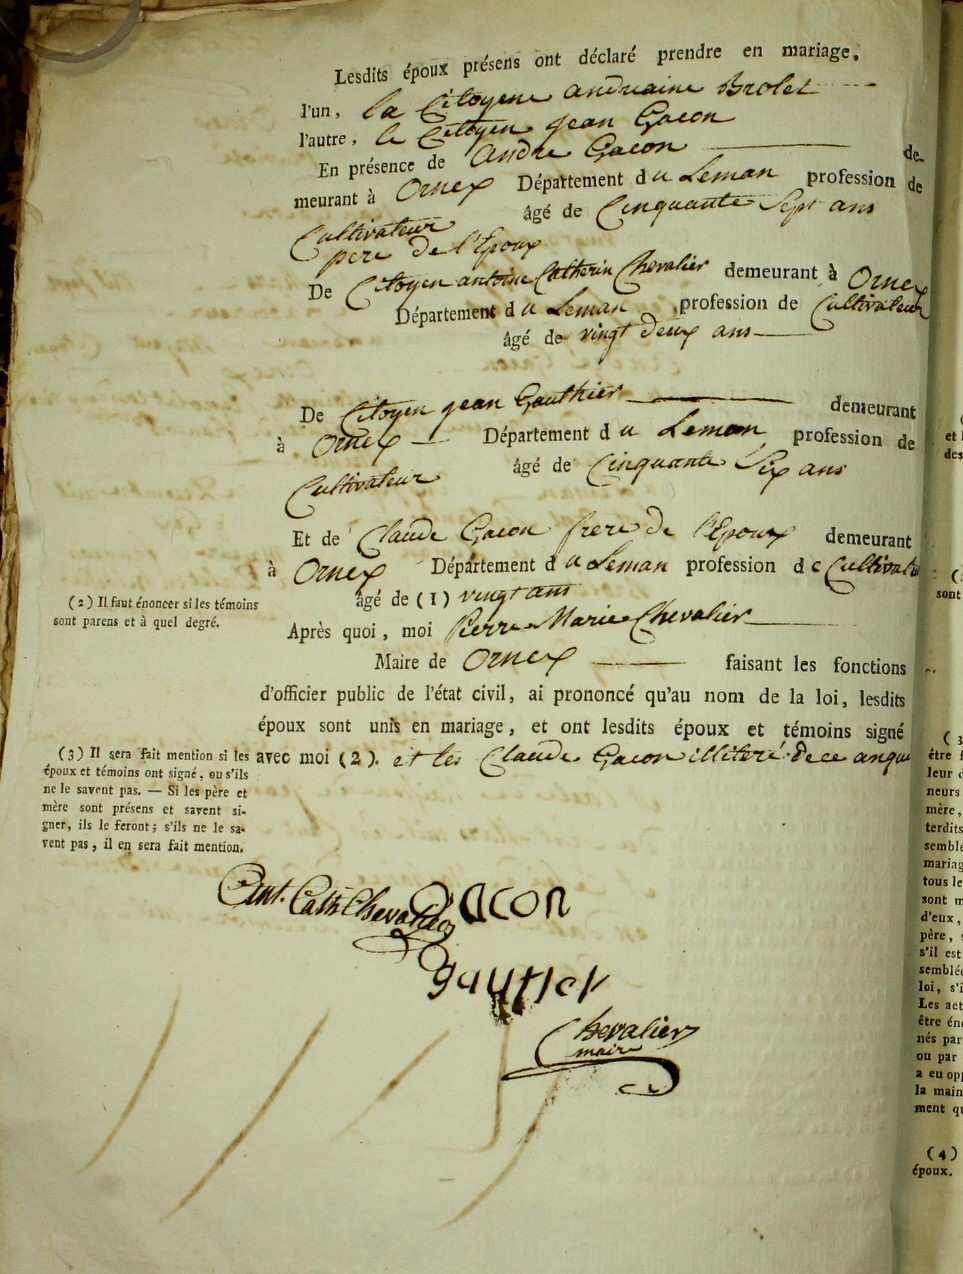 Lesdits époux présens ont déclaré prendre en mariage,
l'un, la Citoyene andrиaine Brolet
l'autre, le Citoyen jean Gacon
En présence de André Gacon de-
meurant à Ornex Département du Leman profession de
Cultivateur âgé de Cinquante Sept ans
pere de l'Epoux
De Citoyen antoine Catherin Chevalier demeurant à Ornex
Département du Leman, profession de Cultivateur
âgé de vingt deux ans
De Citoyen jean Gauthier demeurant
à Ornex Département du Leman profession de
Cultivateur âgé de Cinquante Six ans
Et de Claude Gacon frere de l'Epoux demeurant
à Ornex Département du Leman profession de Cultivate
âgé de (1) vingt ans
Après quoi, moi Pierre Marie Chevalier
Maire de Ornex faisant les fonctions
d'officier public de l'état civil, ai prononcé qu'au nom de la loi, lesdits
époux sont unis en mariage, et ont lesdits époux et témoins signé
avec moi (2). et les Claude Gacon illitiré de ce
(2) Il faut énoncer si les témoins
sont parens et à quel degré.
(3) Il sera fait mention si les
époux et témoins ont signé, ou s'ils
ne le savent pas. — Si les père et
mère sont présens et savent si-
gner, ils le feront; s'ils ne le sa-
vent pas, il en sera fait mention.
Ant. Cath. Chevalier
Gacon
gautier
Chevalier
maire
et
des
(
sont
(3
être
leur
neurs
mère,
terdits
semblé
mariag
tous le
sont
d'eux,
père,
s'il est
semblée
loi, s'i
Les act
être én
nés par
ou par
a eu opp
la main
ment qu
(4)
époux.